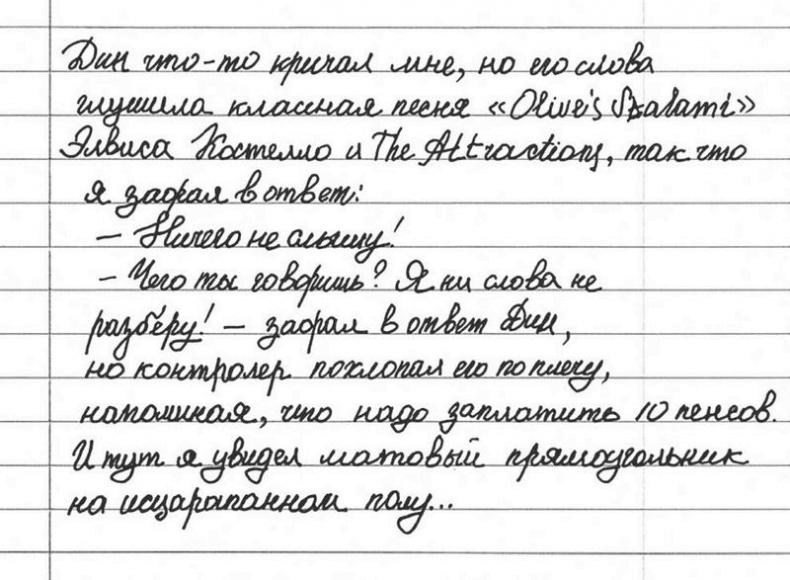 Дин что-то кричал мне, но его слова
глушила классная песня «Olive's Szalami»
Элвиса Костелло и The Attractions, так что
я заорал в ответ:
– Ничего не слышу!
– Чего ты говоришь? Я ни слова не
разберу! – заорал в ответ Дин,
но контролер похлопал его по плечу,
напоминая, что надо заплатить 10 пенсов.
И тут я увидел матовый прямоугольник
на исцарапанном полу...